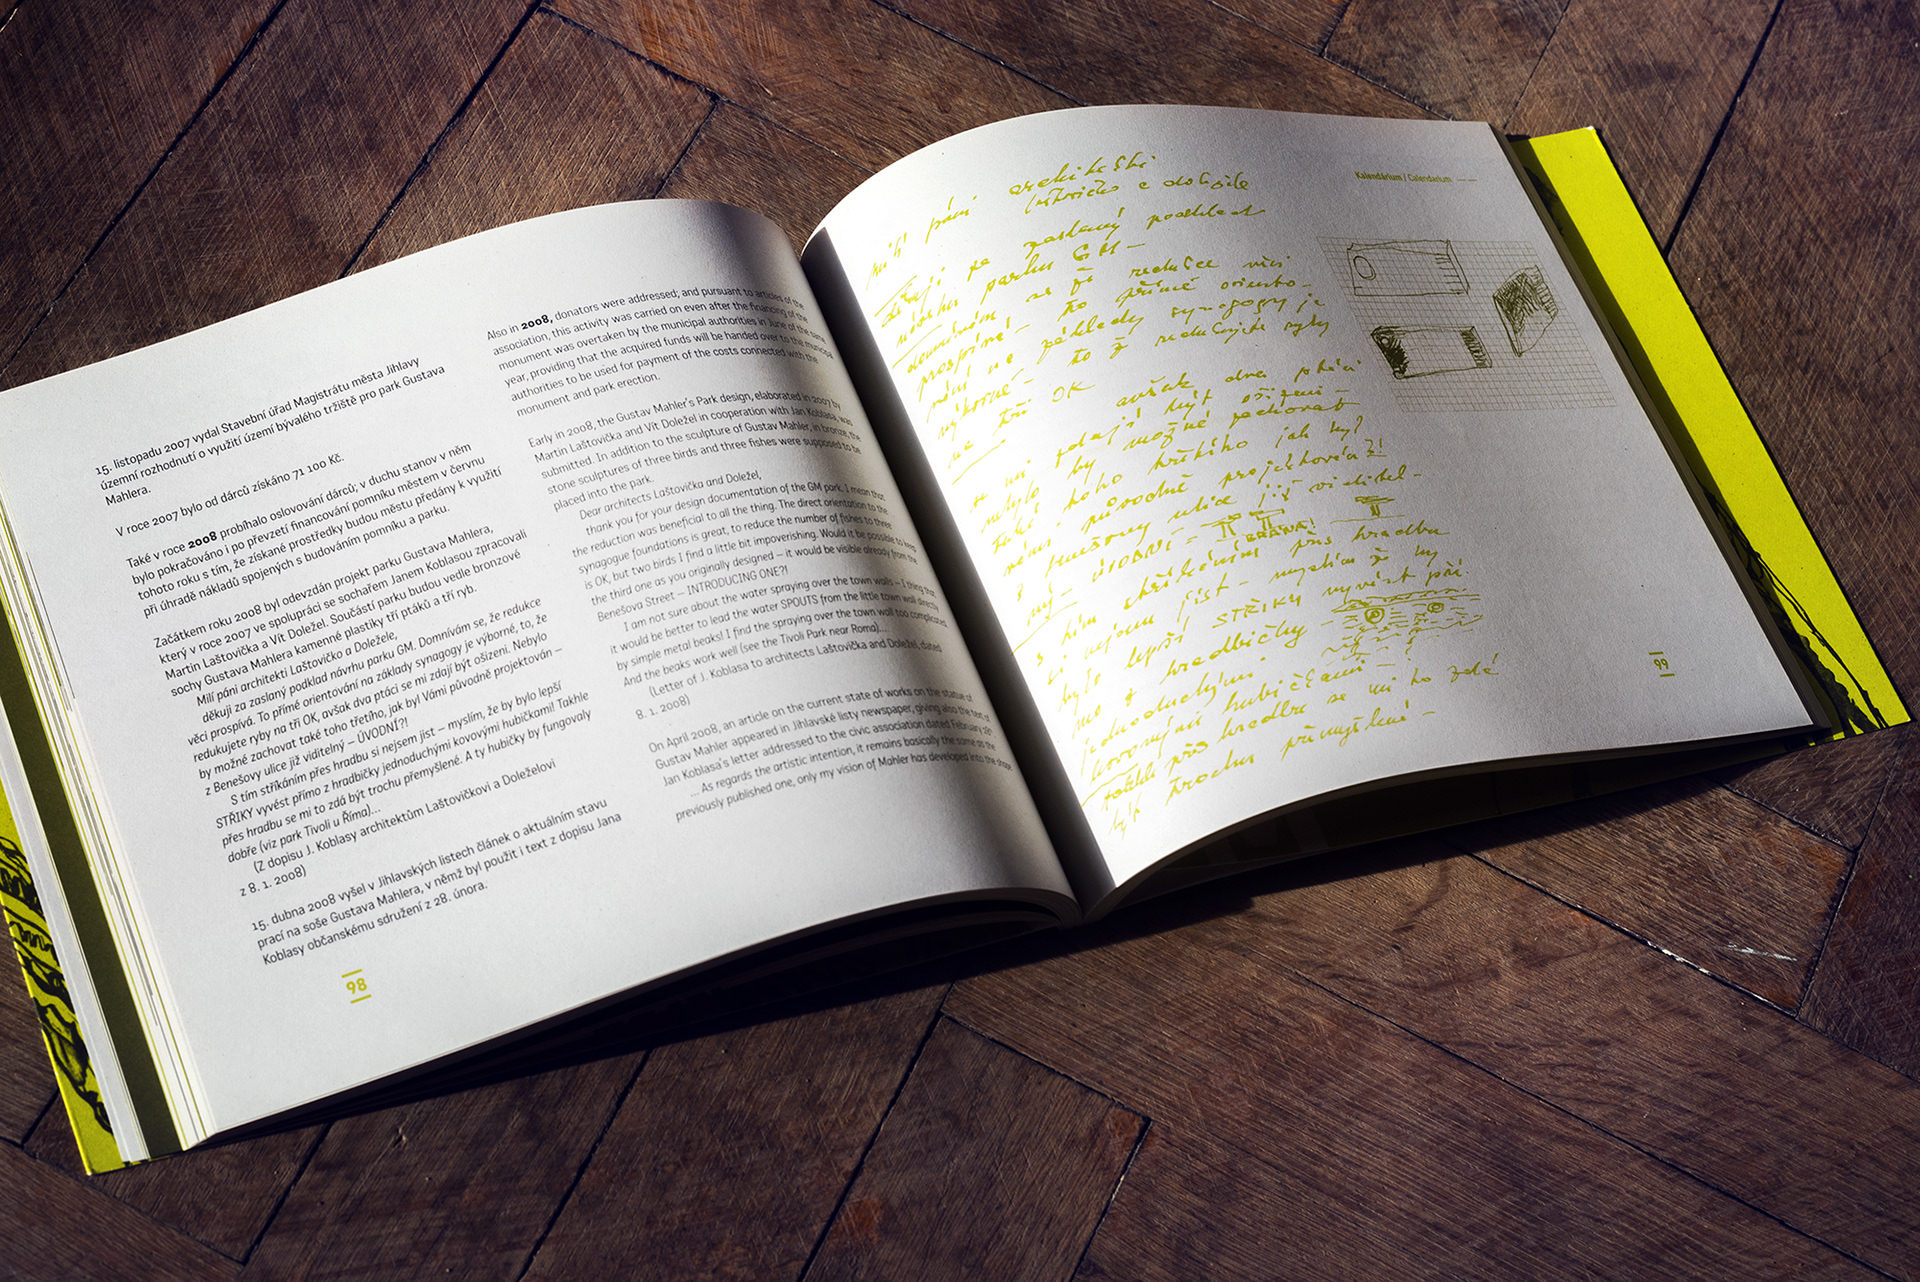 15. listopadu 2007 vydal Stavební úřad Magistrátu města Jihlavy
územní rozhodnutí o využití území bývalého tržiště pro park Gustava
Mahlera.
V roce 2007 bylo od dárců získáno 71 100 Kč.
Také v roce 2008 probíhalo oslovování dárců; v duchu stanov v něm
bylo pokračováno i po převzetí financování pomníku městem v červnu
tohoto roku s tím, že získané prostředky budou městu předány k využití
při úhradě nákladů spojených s budováním pomníku a parku.
Začátkem roku 2008 byl odevzdán projekt parku Gustava Mahlera,
který v roce 2007 ve spolupráci se sochařem Janem Koblasou zpracovali
Martin Laštovička a Vít Doležel. Součástí parku budou vedle bronzové
sochy Gustava Mahlera kamenné plastiky tří ptáků a tří ryb.
Milí páni architekti Laštovičko a Doležele,
děkuji za zaslaný podklad návrhu parku GM. Domnívám se, že redukce
věci prospívá. To přímé orientování na základy synagogy je výborné, to, že
redukujete ryby na tři OK, avšak dva ptáci se mi zdají být ošizení. Nebylo
by možné zachovat také toho třetího, jak byl Vámi původně projektován –
z Benešovy ulice již viditelný – ÚVODNÍ?!
S tím stříkáním přes hradbu si nejsem jist – myslím, že by bylo lepší
STŘIKY vyvést přímo z hradbičky jednoduchými kovovými hubičkami! Takhle
přes hradbu se mi to zdá být trochu přemyšlené. A ty hubičky by fungovaly
dobře (viz park Tivoli u Říma)...
(Z dopisu J. Koblasy architektům Laštovičkovi a Doleželovi
z 8. 1. 2008)
15. dubna 2008 vyšel v Jihlavských listech článek o aktuálním stavu
prací na soše Gustava Mahlera, v němž byl použit i text z dopisu Jana
Koblasy občanskému sdružení z 28. února.
98
Also in 2008, donators were addressed; and pursuant to articles of the
association, this activity was carried on even after the financing of the
monument was overtaken by the municipal authorities in June of the same
year, providing that the acquired funds will be handed over to the municipal
authorities to be used for payment of the costs connected with the
monument and park erection.
Early in 2008, the Gustav Mahler's Park design, elaborated in 2007 by
Martin Laštovička and Vít Doležel in cooperation with Jan Koblasa, was
submitted. In addition to the sculpture of Gustav Mahler, in bronze, the
stone sculptures of three birds and three fishes were supposed to be
placed into the park.
Dear architects Laštovička and Doležel,
thank you for your design documentation of the GM park. I mean that
the reduction was beneficial to all the thing. The direct orientation to the
synagogue foundations is great, to reduce the number of fishes to three
is OK, but two birds I find a little bit impoverishing. Would it be possible to keep
the third one as you originally designed – it would be visible already from the
Benešova Street – INTRODUCING ONE?!
I am not sure about the water spraying over the town walls – I thing that
it would be better to lead the water SPOUTS from the little town wall directly
by simple metal beaks! I find the spraying over the town wall too complicated.
And the beaks work well (see the Tivoli Park near Roma)...
(Letter of J. Koblasa to architects Laštovička and Doležel, dated
8. 1. 2008)
On April 2008, an article on the current state of works on the statue of
Gustav Mahler appeared in Jihlavské listy newspaper, giving also the text of
Jan Koblasa's letter addressed to the civic association dated February 28th
... As regards the artistic intention, it remains basically the same as the
previously published one, only my vision of Mahler has developed into the shape
Kalendárium / Calendarium
milí páni architekti
Laštovičko a doležele
děkuji za zaslaný podklad
návrhu parku GM –
domnívám se že redukce věci
prospívá – to přímé oriento-
vání na základy synagogy je
výborné – to ž redukujete ryby
na tři OK
avšak dva ptáci
se mi zdají být ošizení –
nebylo by možné zachovat
také toho třetího jak byl
vámi původně projektován?!
z Benešovy ulice již viditel-
ný – ÚVODNÍ = BRÁNA!
s tím stříkáním přes hradbu
si nejsem jist – myslím ž by
bylo lepší STŘIKY vyvést pří-
mo z hradbičky –
jednoduchými
kovovými hubičkami –
takhle přes hradbu se mi to zdá
být trochu přemyšlené –
99